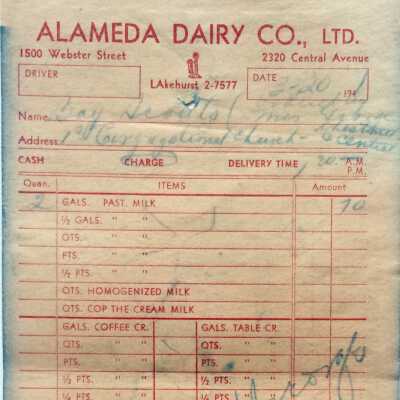 ALAMEDA DAIRY CO., LTD.
1500 Webster Street 2320 Central Avenue
DRIVER LAkehurst 2-7577 DATE 2-20 194
Name Boy Scouts
Address 1st Congregational Church - Chestnut & Central
CASH CHARGE DELIVERY TIME A.M.
P.M.
Quan. ITEMS Amount
2 GALS. PAST. MILK 70
½ GALS. " "
QTS. " "
PTS. " "
½ PTS. " "
QTS. HOMOGENIZED MILK
QTS. COP THE CREAM MILK
GALS. COFFEE CR. GALS. TABLE CR.
QTS. " " QTS. " "
PTS. " " PTS.
½ PTS. " " ½ PTS.